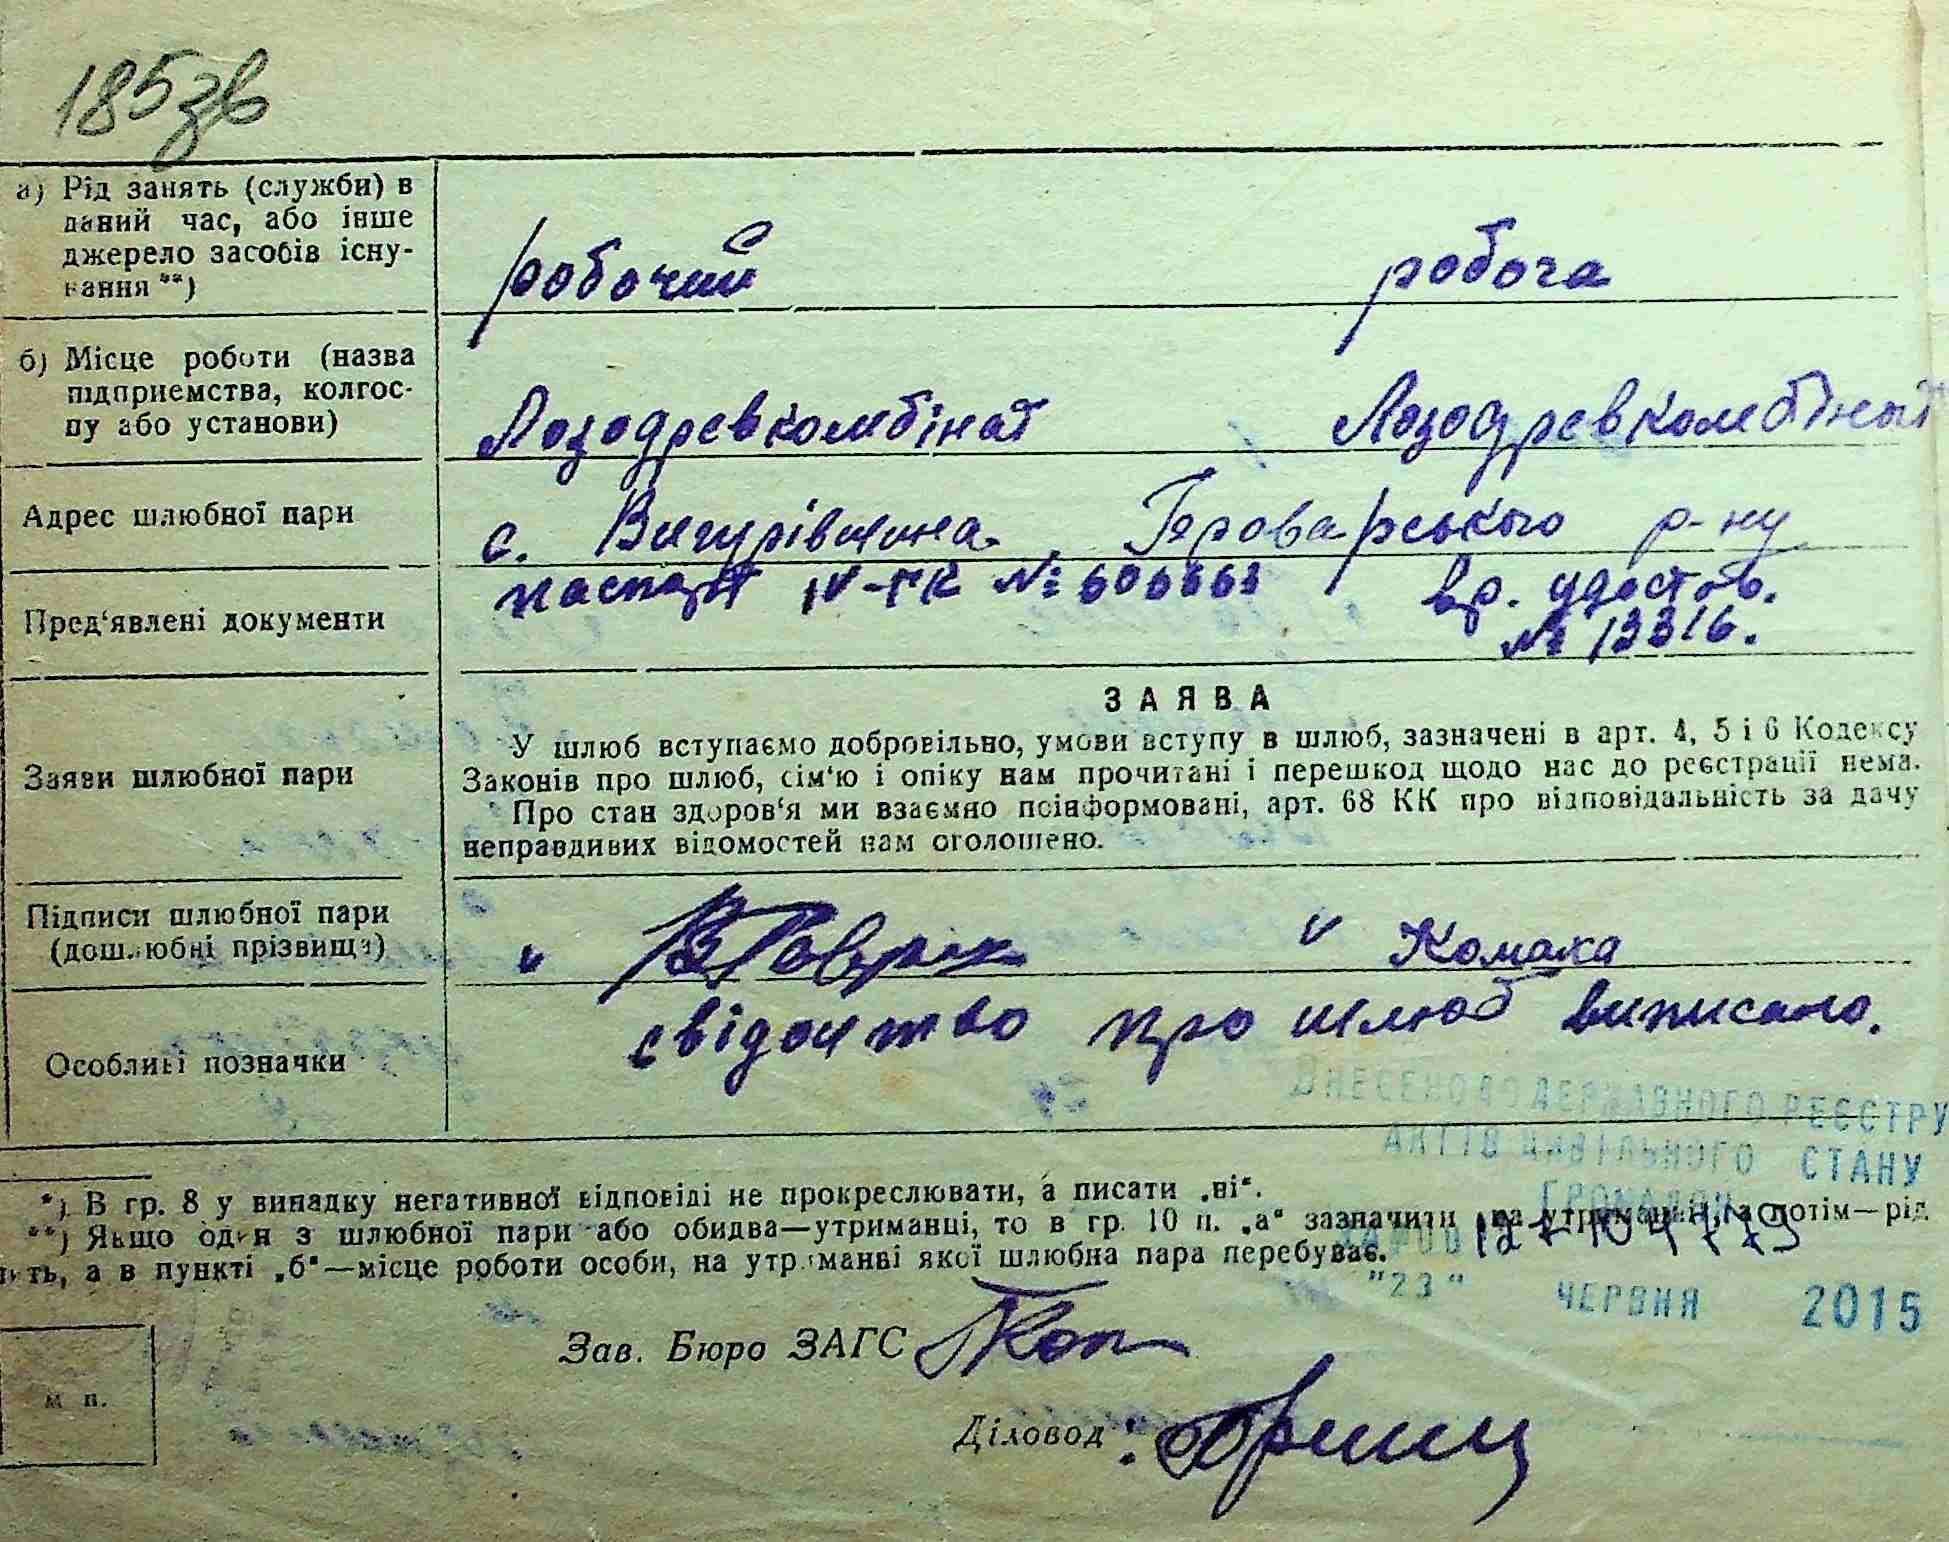 185зв
а) Рід занять (служби) в
даний час, або інше
джерело засобів існу-
вання **)
робочий робоча
б) Місце роботи (назва
підприємства, колгос-
пу або установи)
Лозодревкомбінат Лозодревкомбінат
Адрес шлюбної пари
с. Вигурівщина Броварського р-ну
Пред‘явлені документи
паспорт IV-ГК № 606663 вр. удостов.
№ 13316.
Заяви шлюбної пари
ЗАЯВА
У шлюб вступаємо добровільно, умови вступу в шлюб, зазначені в арт. 4, 5 і 6 Кодексу
Законів про шлюб, сім‘ю і опіку нам прочитані і перешкод щодо нас до реєстрації нема.
Про стан здоров‘я ми взаємно поінформовані, арт. 68 КК про відповідальність за дачу
неправдивих відомостей нам оголошено.
Підписи шлюбної пари
(дошлюбні прізвища)
Комаха
Особливі позначки
свідоцтво про шлюб виписано.
ВНЕСЕНО ДО ДЕРЖАВНОГО РЕЄСТРУ
АКТІВ ЦИВІЛЬНОГО СТАНУ
ГРОМАДЯН
*) В гр. 8 у випадку негативної відповіді не прокреслювати, а писати „ні“.
**) Якщо один з шлюбної пари або обидва—утриманці, то в гр. 10 п. „а“ зазначити на утриманні, а потім—рід
а в пункті „б“—місце роботи особи, на утриманні якої шлюбна пара перебуває.
"23" ЧЕРВНЯ 2015
Зав. Бюро ЗАГС
м п.
Діловод: